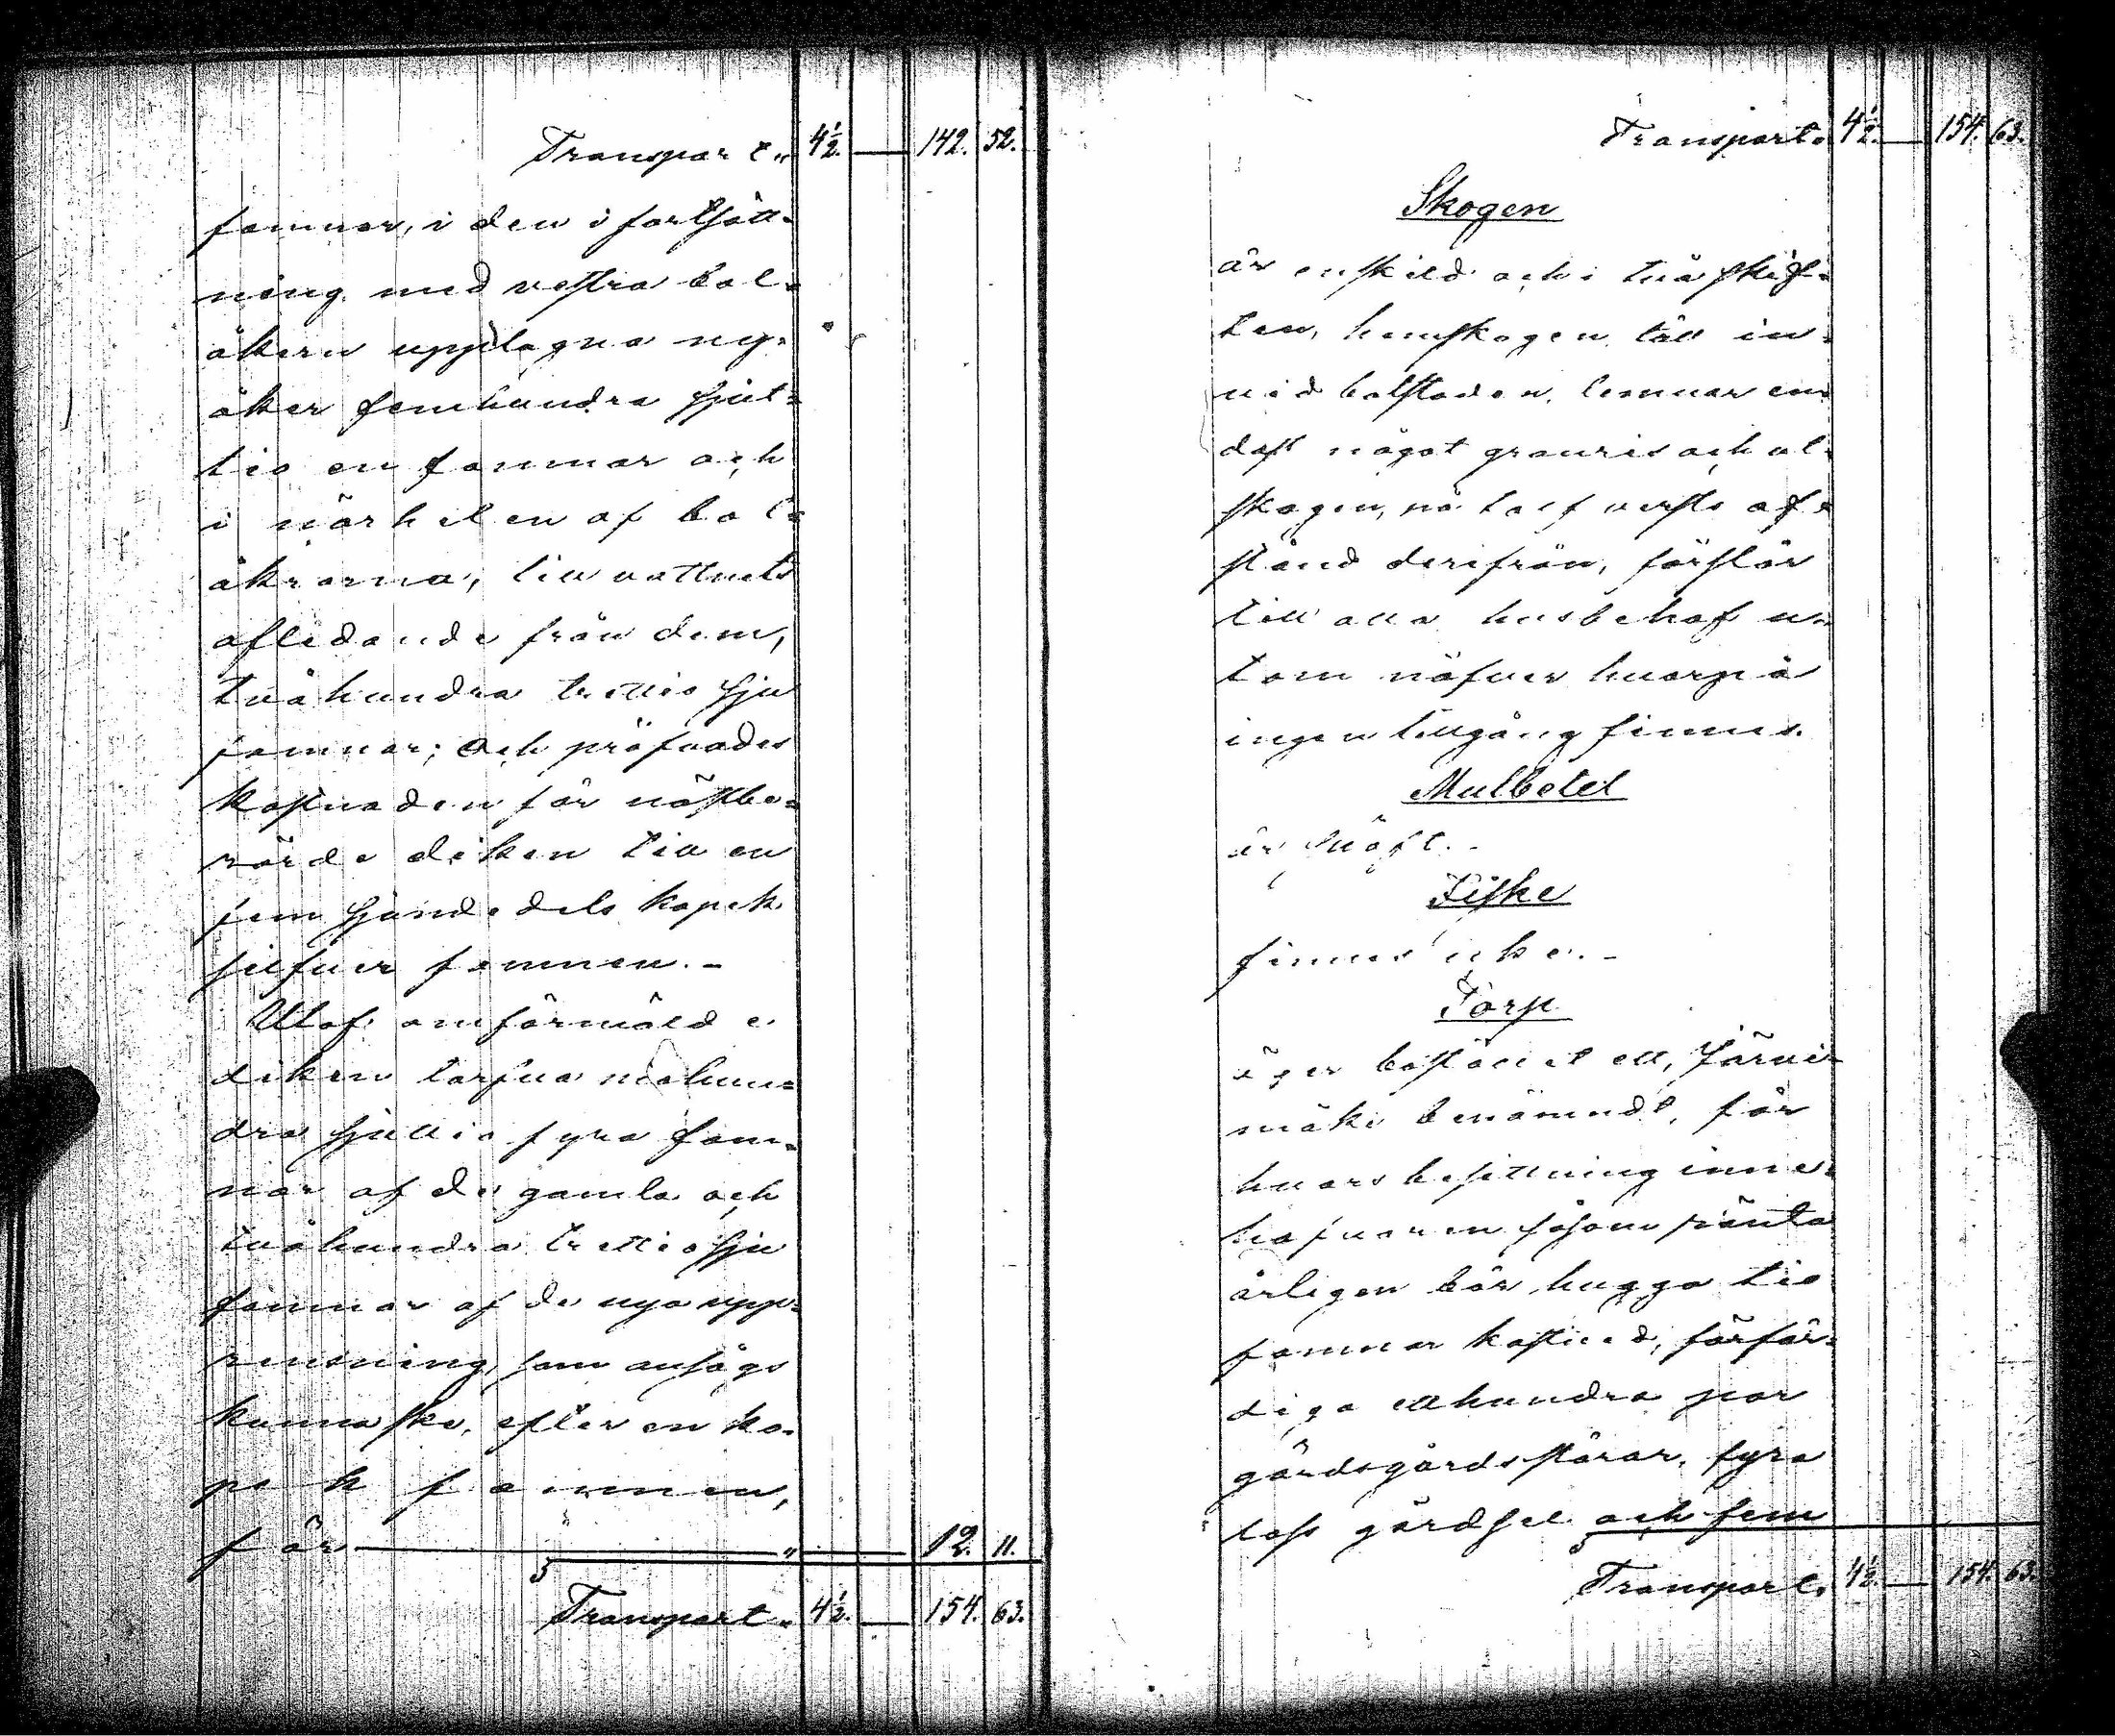 Transport " 4½. — 142. 52.
famnar, i den i fortsätt-
ning med vestra bol-
åkern upptagna ny-
åker femhundra sjut-
tio en famnar och
i närheten af bol-
åkrarna, till vattnets
afledande från dem,
tvåhundra trettio sju
famnar; och pröfvades
kostnaden för nästbe-
rörde diken till en
fem sjundedels kopek
silfver famnen. -
Utaf omförmälde
diken tarfva niohun-
dra sjuttio fyra fam-
nar af de gamla och
tvåhundra trettio sju
famnar af de nya upp-
rensning, som ansågs
kunna ske, efter en ko-
pek famnen,
för — " — 12. 11.
Transport " 4½. — 154. 63.
Transport " 4½. — 154. 63.
Skogen
är enskild och i två skif-
ten, hemskogen tätt in-
vid bolstaden, lemnar en-
dast något granris och ut-
skogen, på half versts af-
stånd derifrån, förslår
till alla husbehof u-
tom näfver hvarpå
ingen tillgång finnes.
Mulbetet
är knäft. -
Fiske
finnes icke. -
Torp
äger bostället ett, Järvi-
mäki benämndt, för
hvars besittning inne-
hafvaren såsom ränta
årligen bör hugga tio
famnar kastved, förfär-
diga etthundra par
gärdsgårdsstörar, fyra
lass gärdsel och fem
Transport " 4½. — 154. 63.